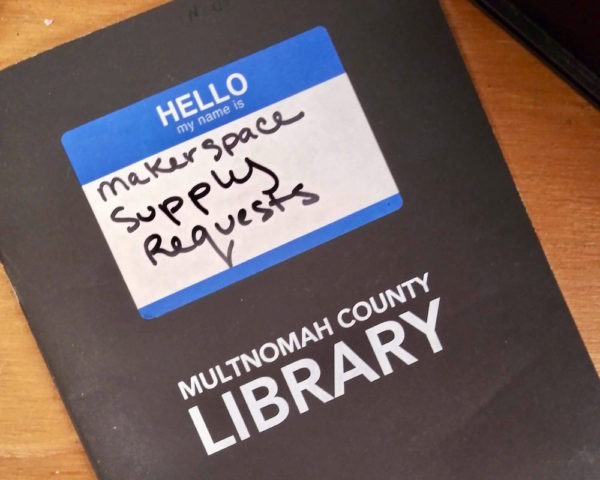 HELLO
my name is
makerspace
supply
Requests
MULTNOMAH COUNTY
LIBRARY